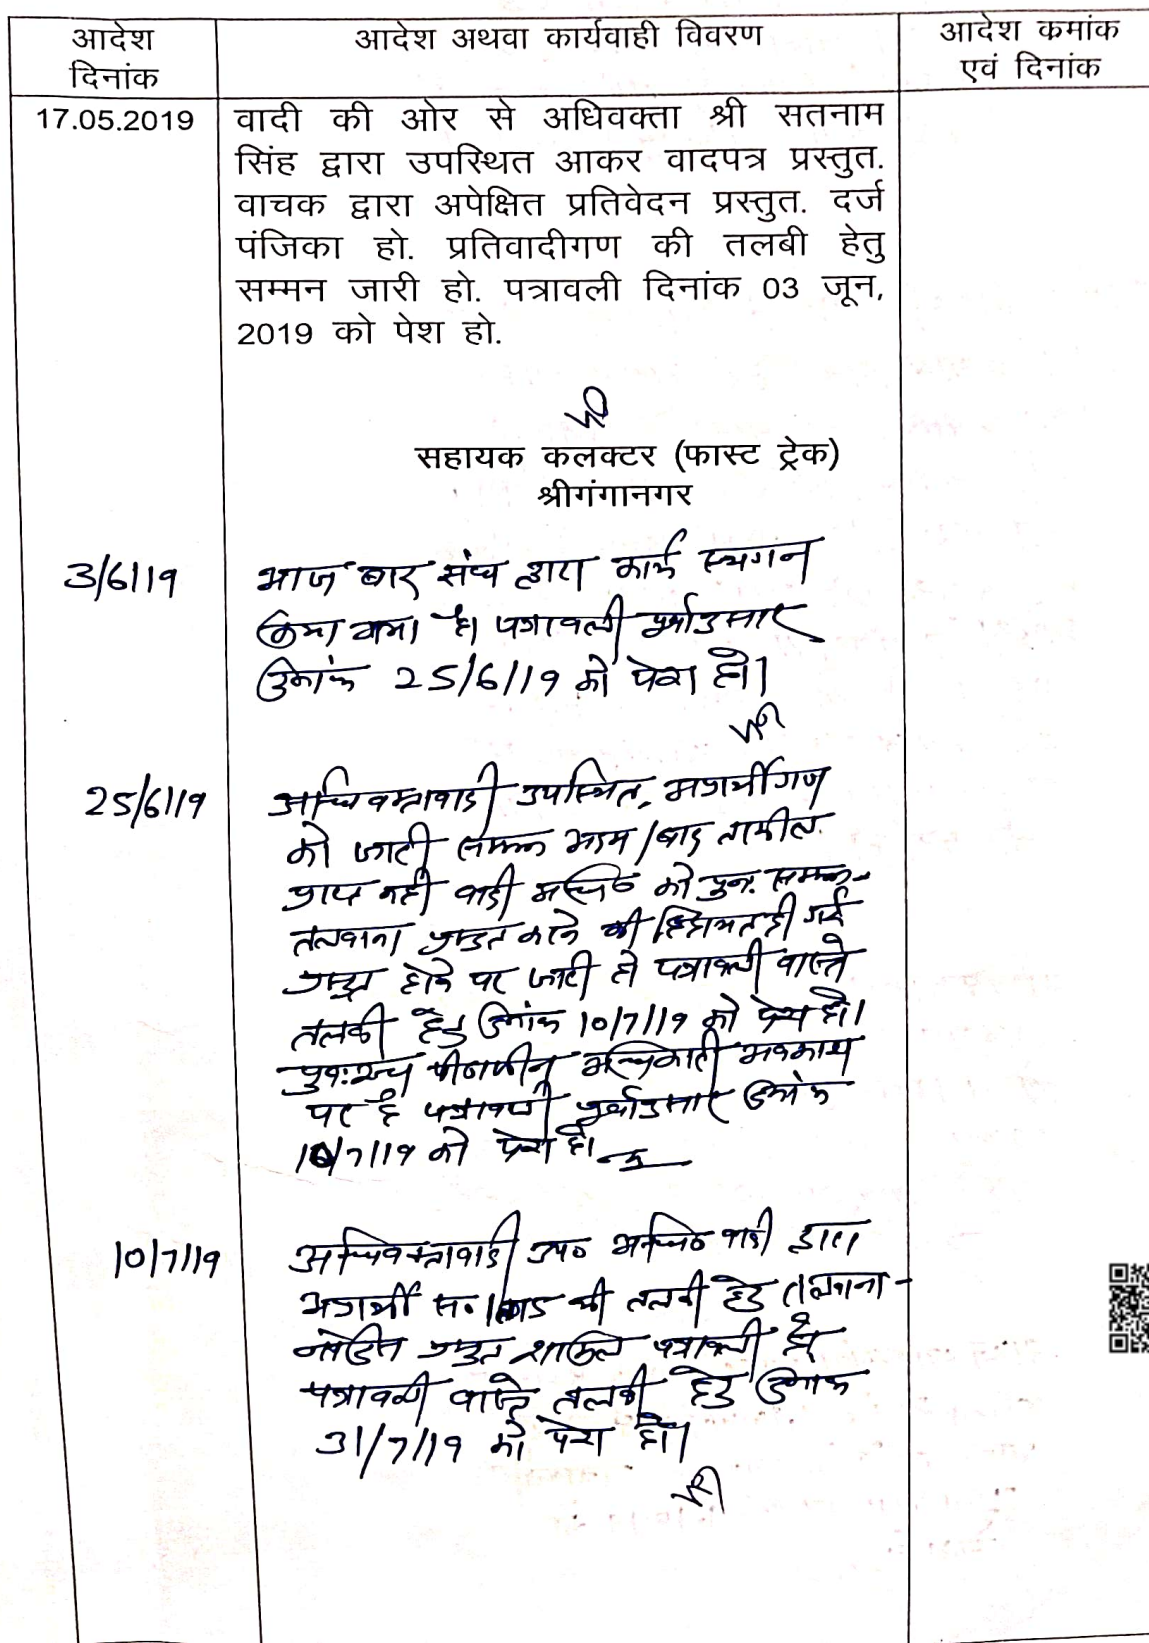 आदेश दिनांक
आदेश अथवा कार्यवाही विवरण
आदेश कमांक एवं दिनांक
17.05.2019
वादी की ओर से अधिवक्ता श्री सतनाम
सिंह द्वारा उपस्थित आकर वादपत्र प्रस्तुत.
वाचक द्वारा अपेक्षित प्रतिवेदन प्रस्तुत. दर्ज
पंजिका हो. प्रतिवादीगण की तलबी हेतु
सम्मन जारी हो. पत्रावली दिनांक 03 जून,
2019 को पेश हो.
सहायक कलक्टर (फास्ट ट्रेक)
श्रीगंगानगर
3/6/19
आज बार संघ द्वारा कार्य स्थगन
किया गया है। पत्रावली पूर्वानुसार
दिनांक 25/6/19 को पेश हो।
25/6/19
अधिवक्तावादी उपस्थित,
को जारी सम्मन / बाद तामील
प्राप्त नही वादी को पुनः सम्मन-
तलवाना प्रस्तुत करने की हिदायत दी गई
प्रस्तुत होने पर जारी हो पत्रावली वास्ते
तलबी हेतु दिनांक 10/7/19 को पेश हो।
पुनःश्च पीठासीन अधिकारी अवकाश
पर है पत्रावली पूर्वानुसार दिनांक
10/7/19 को पेश हो।
10/7/19
अधिवक्तावादी उप० वादी द्वारा
की तलबी हेतु तलवाना-
प्रस्तुत शामिल पत्रावली हो
पत्रावली वास्ते तलबी हेतु दिनांक
31/7/19 को पेश हो।